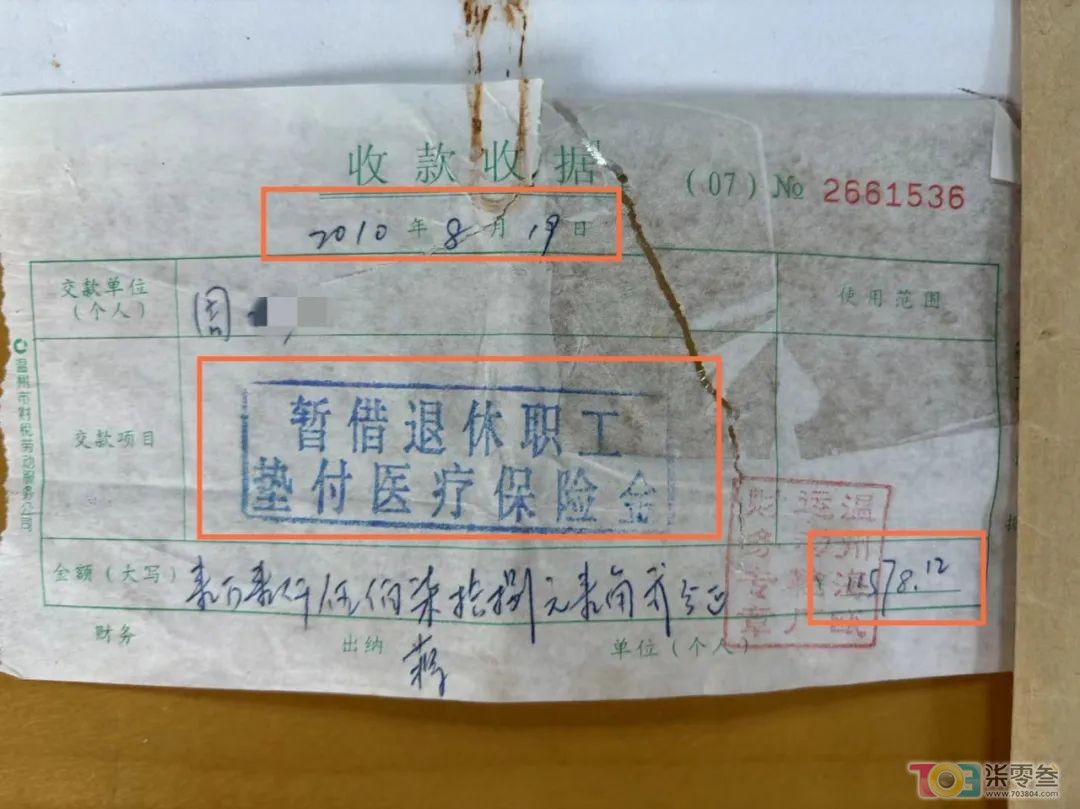 收款收据
(07) № 2661536
2010 年 8 月 19 日
交款单位
(个人)
周
使用范围
温州市财税劳动服务公司
交款项目
暂借退休职工
垫付医疗保险金
金额(大写) 壹万壹仟伍佰柒拾捌元壹角贰分正 11578.12
财务 出纳 单位(个人)
温州海瓯
财务专章
703 柒零叁
www.703804.com